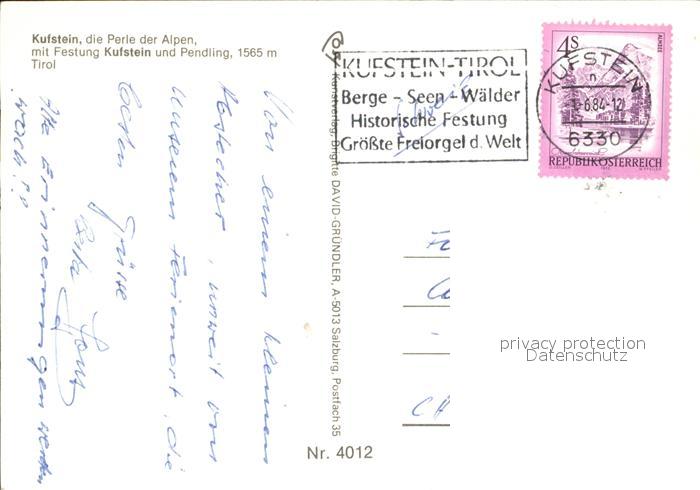 Kufstein, die Perle der Alpen,
mit Festung Kufstein und Pendling, 1565 m
Tirol
KUFSTEIN-TIROL
Berge - Seen - Wälder
Historische Festung
Größte Freiorgel d. Welt
KUFSTEIN
n
-6.84-12
6330
4S
ALMSEE
REPUBLIK ÖSTERREICH
Kunstverlag, Brigitte DAVID-GRÜNDLER, A-5013 Salzburg, Postfach 35
Von einem kleinen
Abstecher, unweit von
unserem Ferienort, die
besten Grüsse
Alte Erinnerungen werden
wach!!
CH
privacy protection
Datenschutz
Nr. 4012